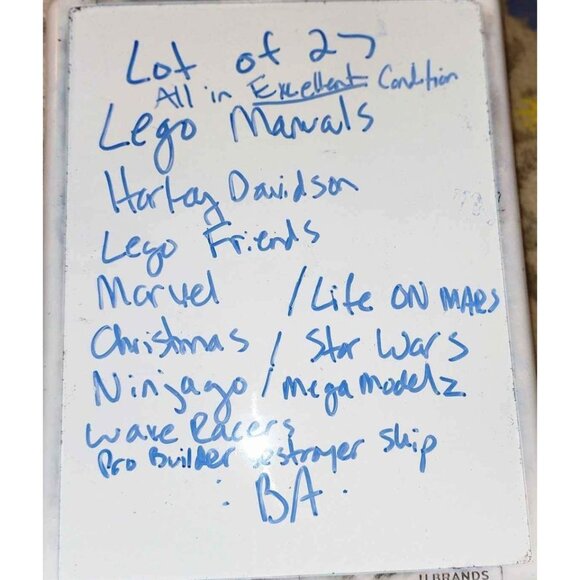 Lot of 27
All in Excellent Condition
Lego Manuals
Harley Davidson
Lego Friends
Marvel / Life ON MARS
Christmas / Star Wars
Ninjago / Mega Modelz
Wave Racers
Pro Builder Destroyer ship
BA
U BRANDS